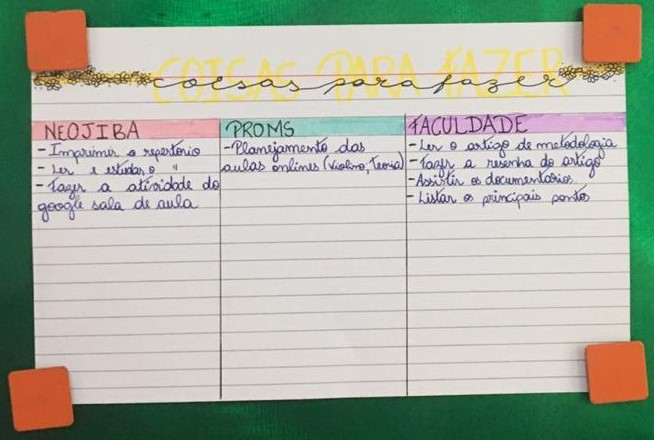 COISAS PARA FAZER
coisas para fazer
NEOJIBA
- Imprimir o repertório
- Ler e estudar o "
- Fazer a atividade do
google sala de aula
PROMS
- Planejamento das
aulas onlines (Violino, Teoria)
FACULDADE
- Ler o artigo de metodologia
- Fazer a resenha do artigo
- Assistir os documentários
- Listar os principais pontos